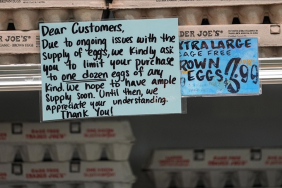 DER JOE'S
Dear Customers,
Due to ongoing issues with the
supply of eggs, we kindly ask
you to limit your purchase
to one dozen eggs of any
kind. We hope to have ample
supply soon. Until then, we
appreciate your understanding.
Thank you!
ER JOE'S
TRA LARGE
AGE FREE
ROWN
EGGS